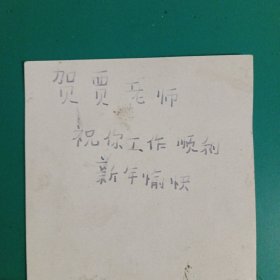 贺贾老师
祝你工作顺利
新年愉快